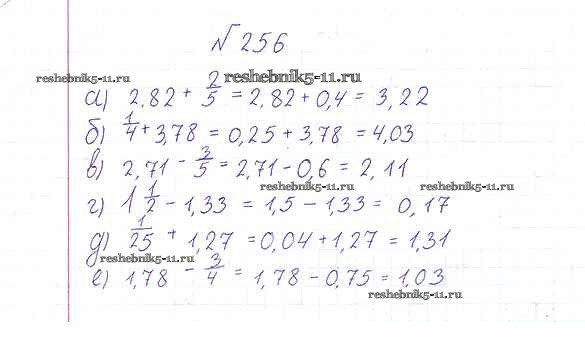 №256
reshebnik5-11.ru
reshebnik5-11.ru
а) 2,82 + 2/5 = 2,82 + 0,4 = 3,22
б) 1/4 + 3,78 = 0,25 + 3,78 = 4,03
в) 2,71 - 3/5 = 2,71 - 0,6 = 2,11
reshebnik5-11.ru
reshebnik5-11.ru
г) 1 1/2 - 1,33 = 1,5 - 1,33 = 0,17
д) 1/25 + 1,27 = 0,04 + 1,27 = 1,31
reshebnik5-11.ru
е) 1,78 - 3/4 = 1,78 - 0,75 = 1,03
reshebnik5-11.ru